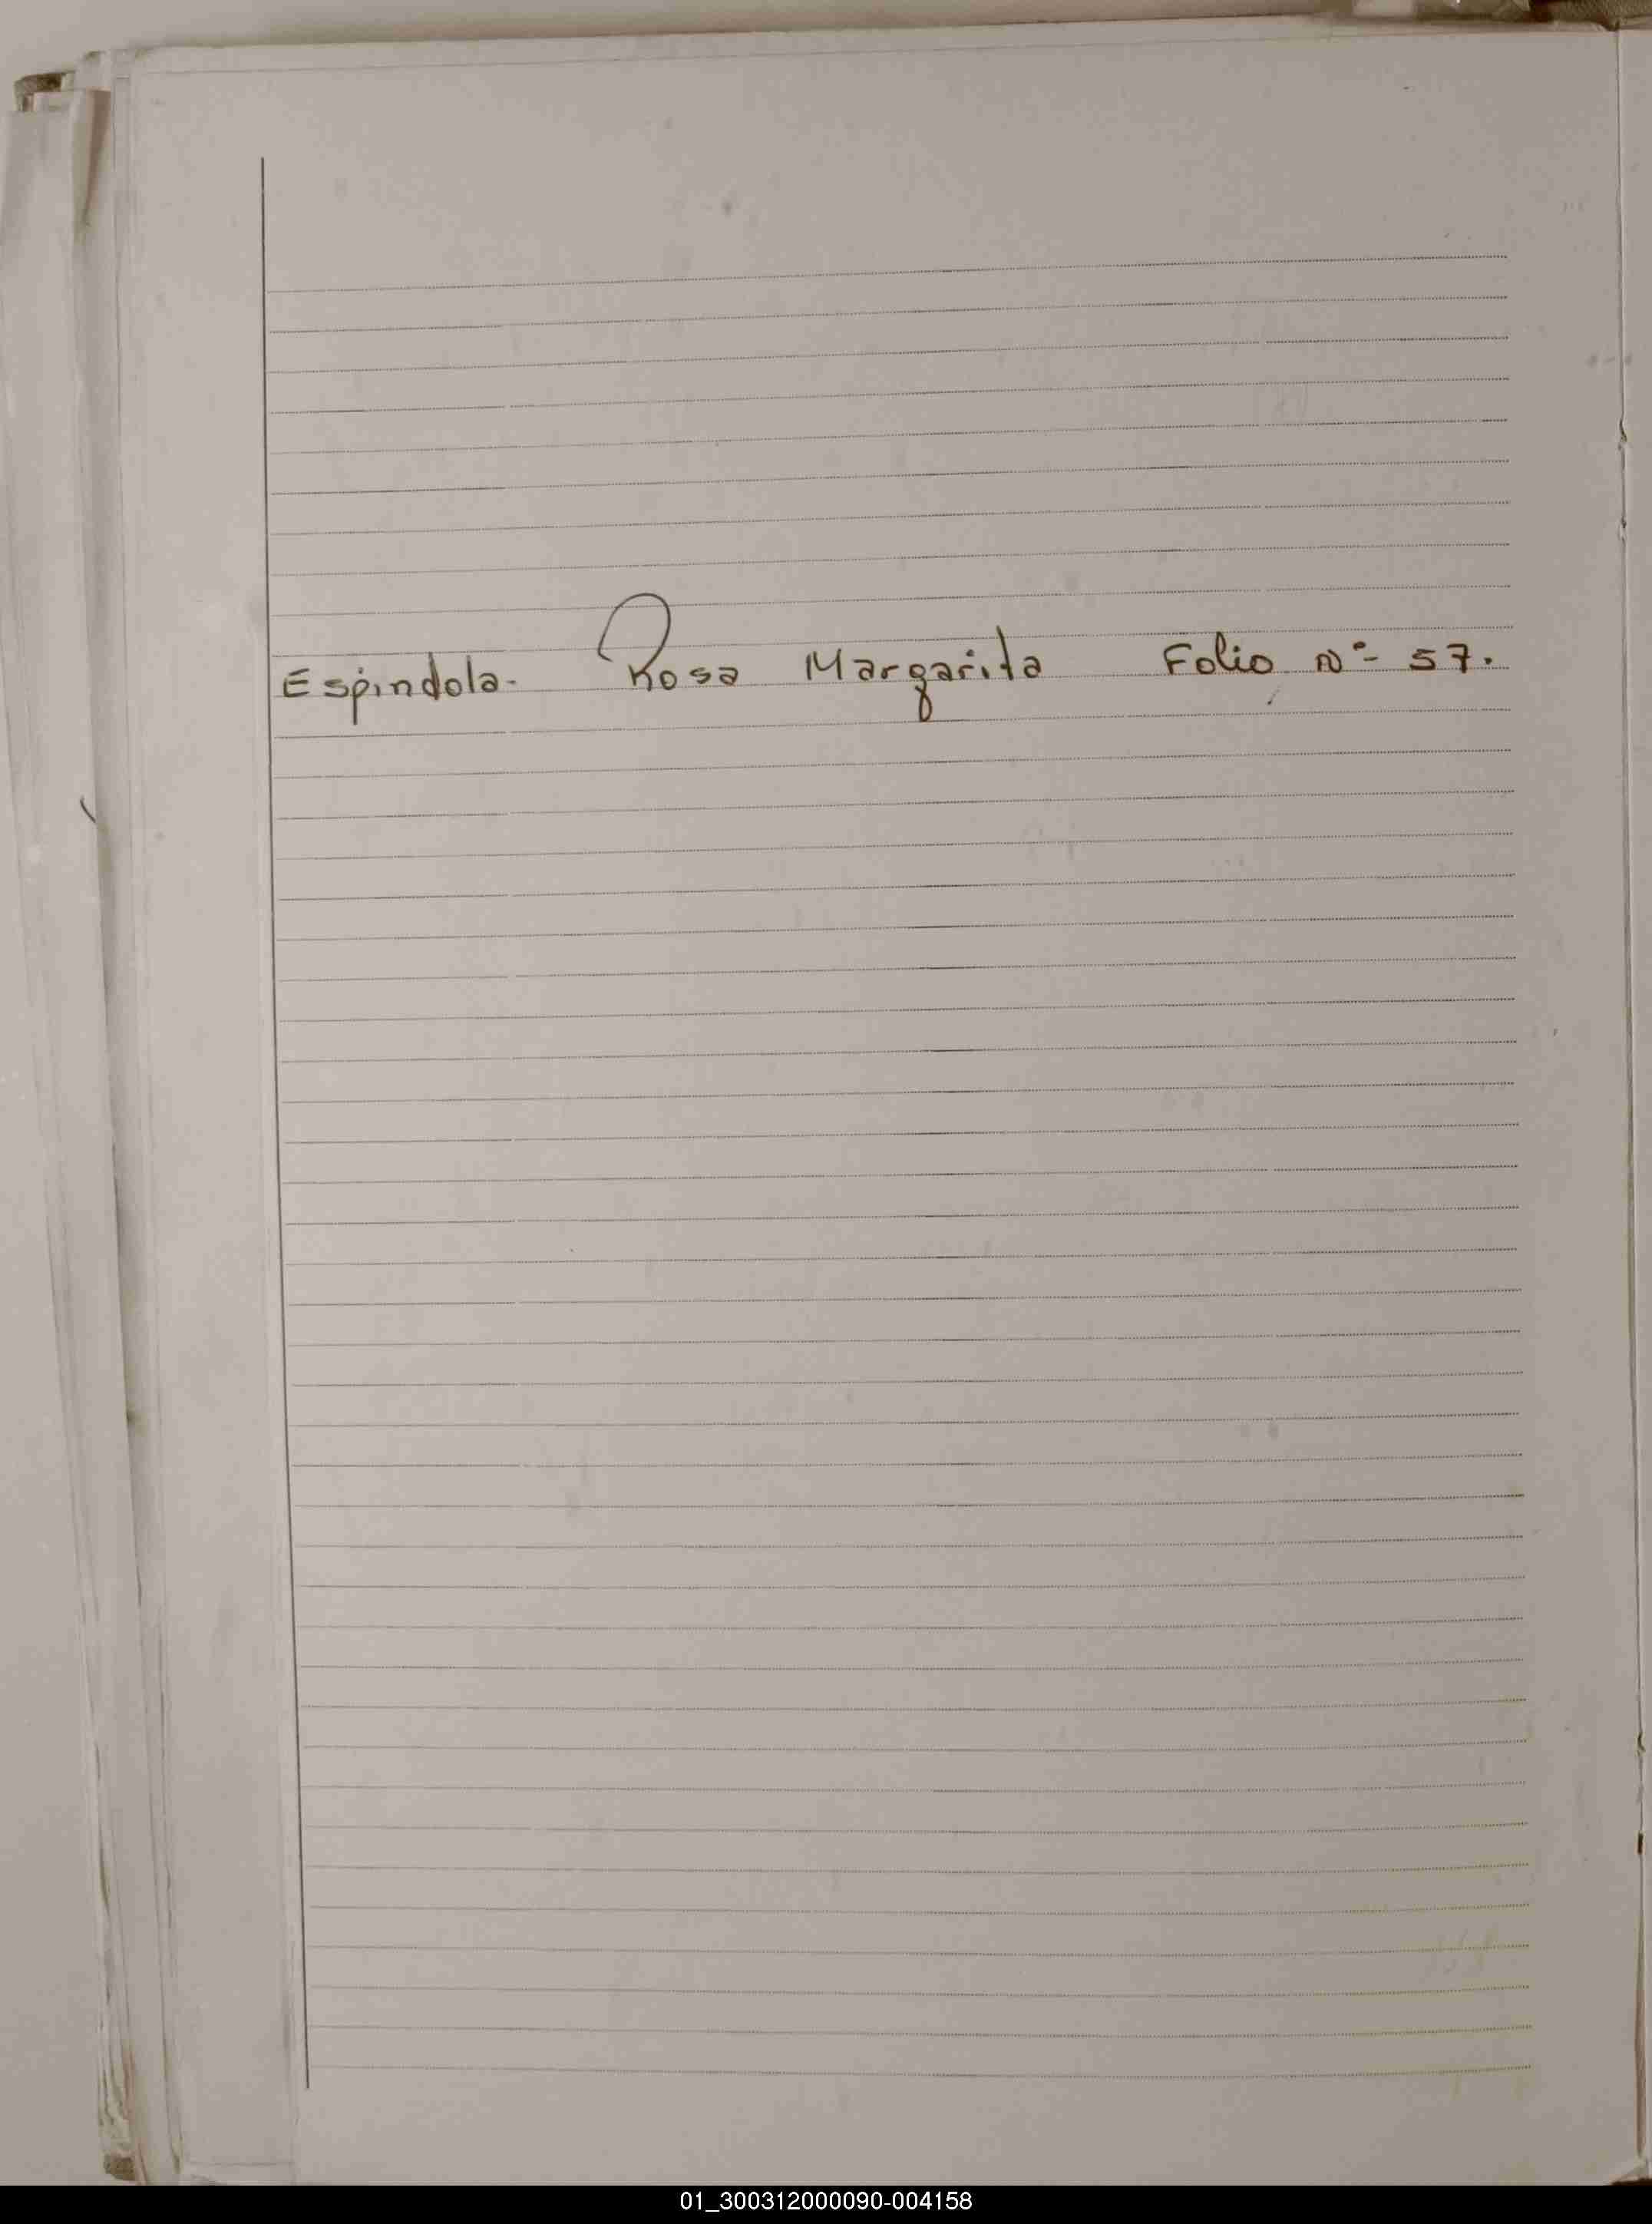 Espindola- Rosa Margarita Folio Nº- 57.
01_300312000090-004158